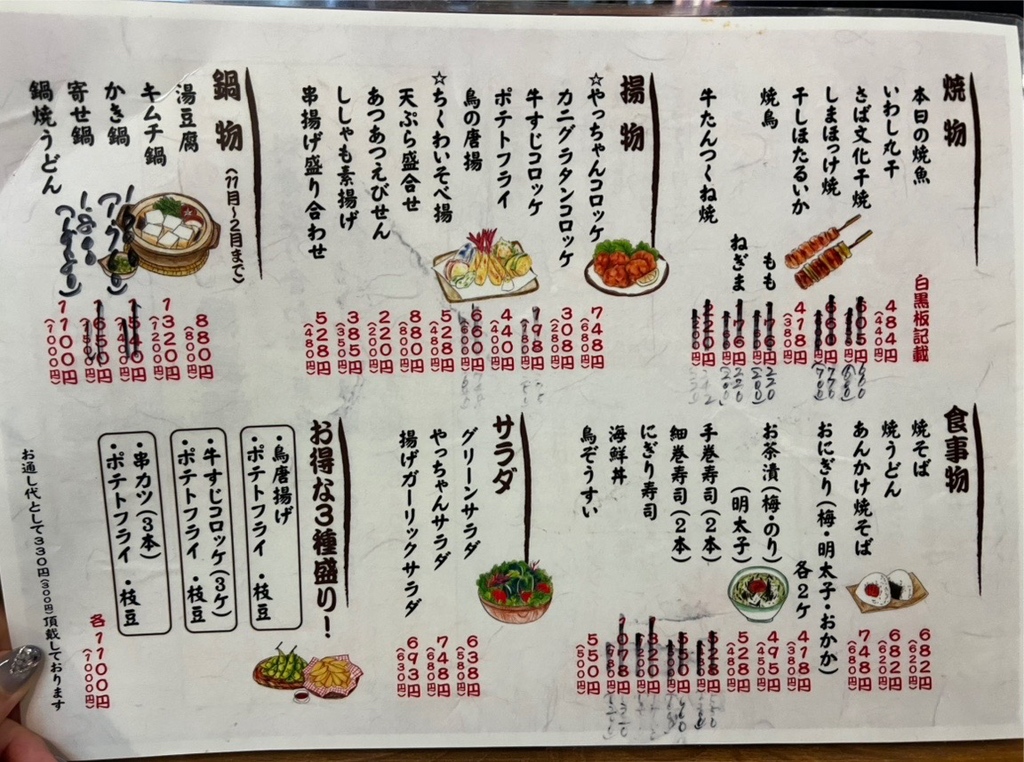 焼物
本日の焼魚 白黒板記載
いわし丸干 484円 (440円)
さば文化干焼 605円 660 (600)
しまほっけ焼 660円 770 (700)
干しほたるいか 418円 (380円)
焼鳥 もも 176円 220 (200)
ねぎま 176円 220 (200)
牛たんつくね焼 220円
揚物
☆やっちゃんコロッケ 748円 (680円)
カニグラタンコロッケ 308円 (280円)
牛すじコロッケ 198円 (180円)
ポテトフライ 440円 (400円)
鳥の唐揚 660円 (600円)
☆ちくわいそべ揚 528円 (480円)
天ぷら盛合せ 880円 (800円)
あつあつえびせん 220円 (200円)
ししゃも素揚げ 385円 (350円)
串揚げ盛り合わせ 528円 (480円)
鍋物 (11月～2月まで)
湯豆腐 880円 (800円)
キムチ鍋 1320円 (1200円)
かき鍋 1540円 (1400円)
寄せ鍋 1650円 (1500円)
鍋焼うどん 1100円 (1000円)
食事物
焼そば 682円 (620円)
焼うどん 682円 (620円)
あんかけ焼そば 748円 (680円)
おにぎり(梅・明太子・おかか) 各2ケ 418円 (380円)
お茶漬(梅・のり) 495円 (450円)
(明太子) 528円 (480円)
手巻寿司(2本) 528円
細巻寿司(2本) 550円
にぎり寿司
海鮮丼 1078円
鳥ぞうすい 550円 (500円)
サラダ
グリーンサラダ 638円 (580円)
やっちゃんサラダ 748円 (680円)
揚げガーリックサラダ 693円 (630円)
お得な3種盛り!
・鳥唐揚げ
・ポテトフライ ・枝豆
・牛すじコロッケ(3ケ)
・ポテトフライ ・枝豆
・串カツ(3本)
・ポテトフライ ・枝豆
各1100円 (1000円)
お通し代として330円(300円)頂戴しております